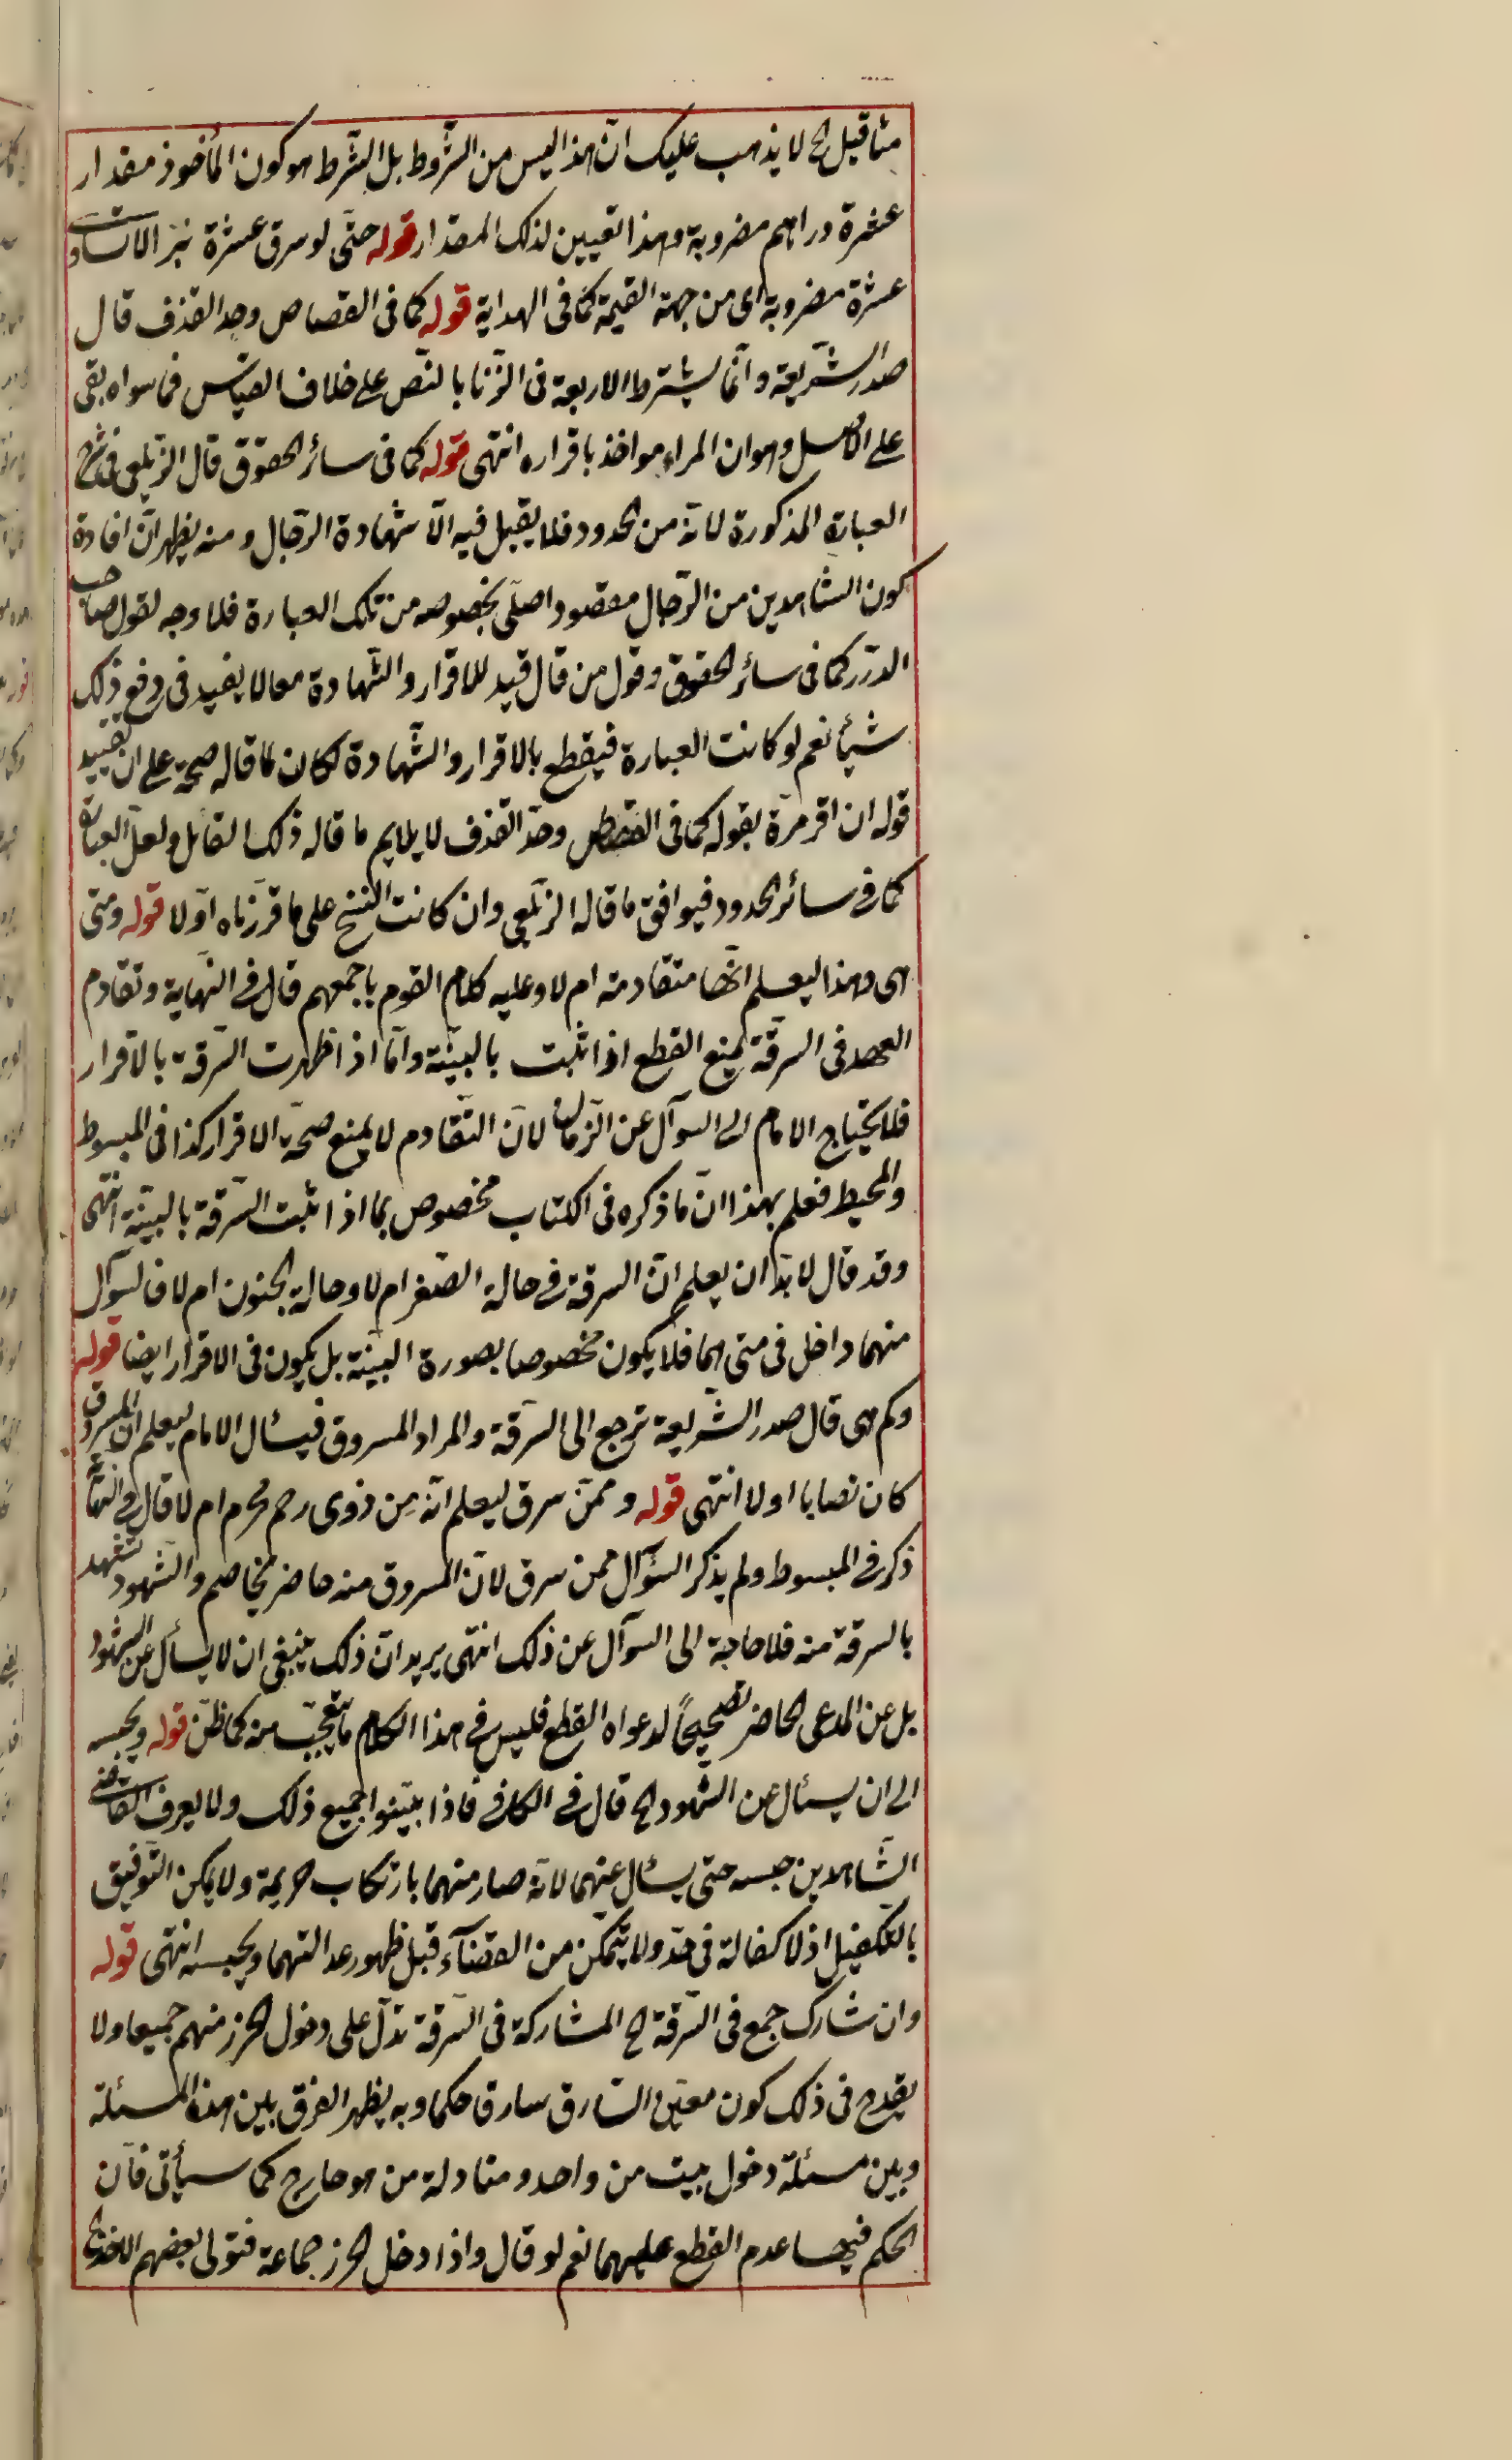 مثاقيل الخ لا يذهب عليك انّ هذا ليس من الشّروط بل الشّرط هو كون المأخوذ مقدار
عشرة دراهم مضروبة وهذا تعيين لذلك المقدار قوله حتّى لو سرق عشرة تبر الاتساوى
عشرة مضروبة اى من جهة القيمة كما فى الهداية قوله كما فى القصاص وحد القذف قال
صدر الشّريعة وانّما يشترط الاربعة فى الزّنا بالنّص على خلاف القياس فما سواه بقى
على الاصل وهو ان المراء مواخذ باقراره انتهى قوله كما فى سائر الحقوق قال الزّيلعى فى شرح
العبارة المذكورة لانّه من الحدود فلا يقبل فيه الّا شهادة الرّجال ومنه يظهر انّ افادة
كون الشاهدين من الرّجال مقصود اصلّى بخصوصه من تلك العبارة فلا وجه لقول صاحب
الدّرر كما فى سائر الحقوق وقول من قال قيد للاقرار والشّهادة معا لا يفيد فى دفع ذلك
شيأ نعم لو كانت العبارة فيقطع بالاقرار والشّهادة لكان لما قاله صحة على ان تقييد
قوله ان اقر مرّة بقوله كما فى القصاص وحدّ القذف لا يلايم ما قاله ذلك القائل ولعلّ العبارة
كما فى سائر الحدود فيوافق ما قاله الزّيلعى وان كانت النسخ على ما قرّرناه اوّلا قوله ومتى
هى وهذا ليعلم انّها متقادمة ام لا وعليه كلام القوم باجمعهم قال فى النّهاية وتقادم
العهد فى السرقة يمنع القطع اذا ثبت بالبيّنة وامّا اذا ظهرت السّرقة بالاقرار
فلا يحتاج الامام الى السؤال عن الزّمان لانّ التّقادم لا يمنع صحّة الاقرار كذا فى المبسوط
والمحيط فعلم بهذا انّ ما ذكره فى الكتاب مخصوص بما اذا ثبت السّرقة بالبيّنة انتهى
وقد قال لا بدّ ان يعلم انّ السرقة فى حالة الصّغر ام لا وحالة الجنون ام لا فالسؤال
منهما داخل فى متى هما فلا يكون مخصوصا بصورة البيّنة بل يكون فى الاقرار ايضا قوله
وكم هى قال صدر الشّريعة ترجع الى السّرقة والمراد المسروق فيسئال الامام ليعلم ان المسروق
كان نصابا او لا انتهى قوله وممّن سرق ليعلم انّه من ذوى رحم محرم ام لا قال فى النّهاية
ذكر فى المبسوط ولم يذكر السّؤال ممن سرق لانّ المسروق منه حاضر يخاصم والشّهود تشهد
بالسرقة منه فلا حاجة الى السوآل عن ذلك انتهى يريد انّ ذلك ينبغى ان لا يسأل عن الشهود
بل عن المدعى الحاضر تصحيحاً لدعواه القطع فليس فى هذا الكلام ما يتعجّب منه كما ظنّ قوله ويحبسه
الى ان يسئال عن الشّهود الخ قال فى الكافى فاذا بيّنوا جميع ذلك ولا يعرف القاضى
الشّاهدين حبسه حتى يسئال عنهما لانّه صار منهما بارتكاب جريمة ولا يمكن التّوفيق
بالتكفيل اذ لا كفالة فى حدّ ولا يتمّكن من القضآء قبل ظهور عدالتهما ويحبسه انتهى قوله
وان شارك جمع فى السّرقة الخ المشاركة فى السّرقة تدّل على دخول الحرز منهم جميعا ولا
يقدح فى ذلك كون معيّن السّارق سارق حكما وبه يظهر الفرق بين هذه المسئلة
وبين مسئلة دخول بيت من واحد ومناولة من هو خارج كما سيأتى فانّ
الحكم فيها عدم القطع عليهما نعم لو قال واذا دخل الحرز جماعة فتولى بعضهم الاخذ